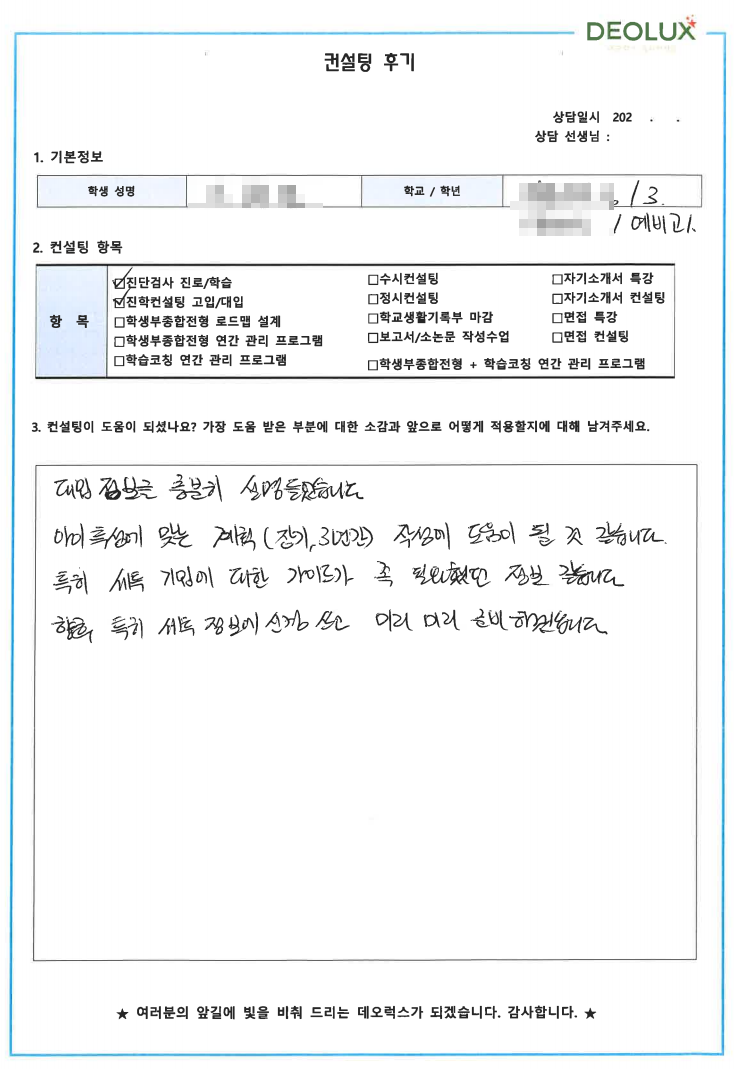 DEOLUX
컨설팅 후기
상담일시 202 . .
상담 선생님 :
1. 기본정보
학생 성명 학교 / 학년 / 3.
/ 예비고1.
2. 컨설팅 항목
항 목
☑진단검사 진로/학습 □수시컨설팅 □자기소개서 특강
☑진학컨설팅 고입/대입 □정시컨설팅 □자기소개서 컨설팅
□학생부종합전형 로드맵 설계 □학교생활기록부 마감 □면접 특강
□학생부종합전형 연간 관리 프로그램 □보고서/소논문 작성수업 □면접 컨설팅
□학습코칭 연간 관리 프로그램 □학생부종합전형 + 학습코칭 연간 관리 프로그램
3. 컨설팅이 도움이 되셨나요? 가장 도움 받은 부분에 대한 소감과 앞으로 어떻게 적용할지에 대해 남겨주세요.
대입 정보를 충분히 설명들었습니다
아이 특성에 맞는 계획(장기, 3년간) 작성에 도움이 될 것 같습니다.
특히 세특 기입에 대한 가이드가 꼭 필요했던 정보 같습니다
향후, 특히 세특 정보에 신경 쓰고 미리 미리 준비하겠습니다.
★ 여러분의 앞길에 빛을 비춰 드리는 데오럭스가 되겠습니다. 감사합니다. ★